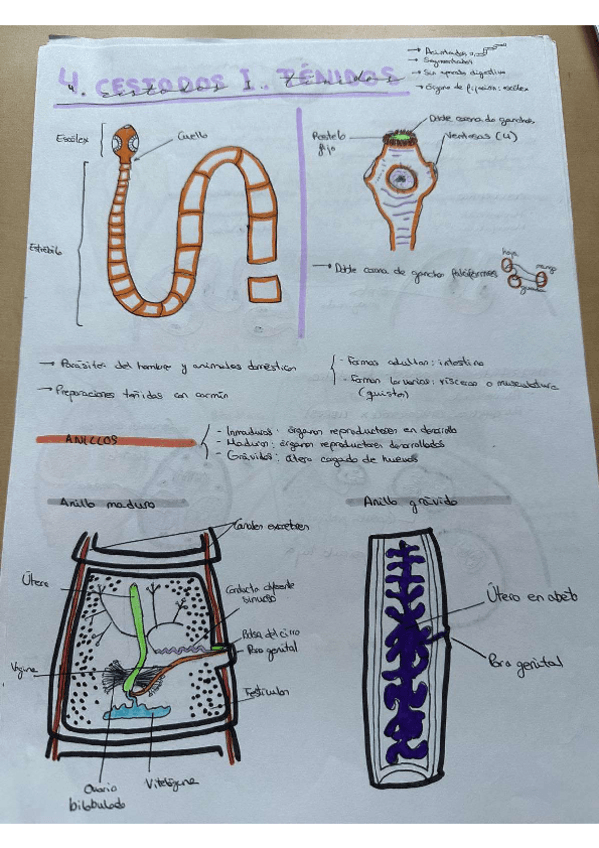 4. CESTODOS I. Ténidos
→ Segmentados
→ Sin aparato digestivo
→ Órgano de fijación: escólex
Escólex
Cuello
Estróbilo
Doble corona de ganchos
Rostelo
fijo
Ventosas (4)
→ Doble corona de ganchos falciformes
hoja
mango
→ Parásitos del hombre y animales domésticos
- Formas adultas: intestino
- Formas larvarias: vísceras o musculatura
(quistes)
→ Preparaciones teñidas con carmín
ANILLOS
- Inmaduros: órganos reproductores en desarrollo
- Maduros: órganos reproductores desarrollados
- Grávidos: útero cargado de huevos
Anillo maduro
Anillo grávido
Canales excretores
Útero
Conducto deferente
sinuoso
Bolsa del cirro
Poro genital
Vagina
Testículos
Ovario
bilobulado
Vitelógena
Útero en abeto
Poro genital